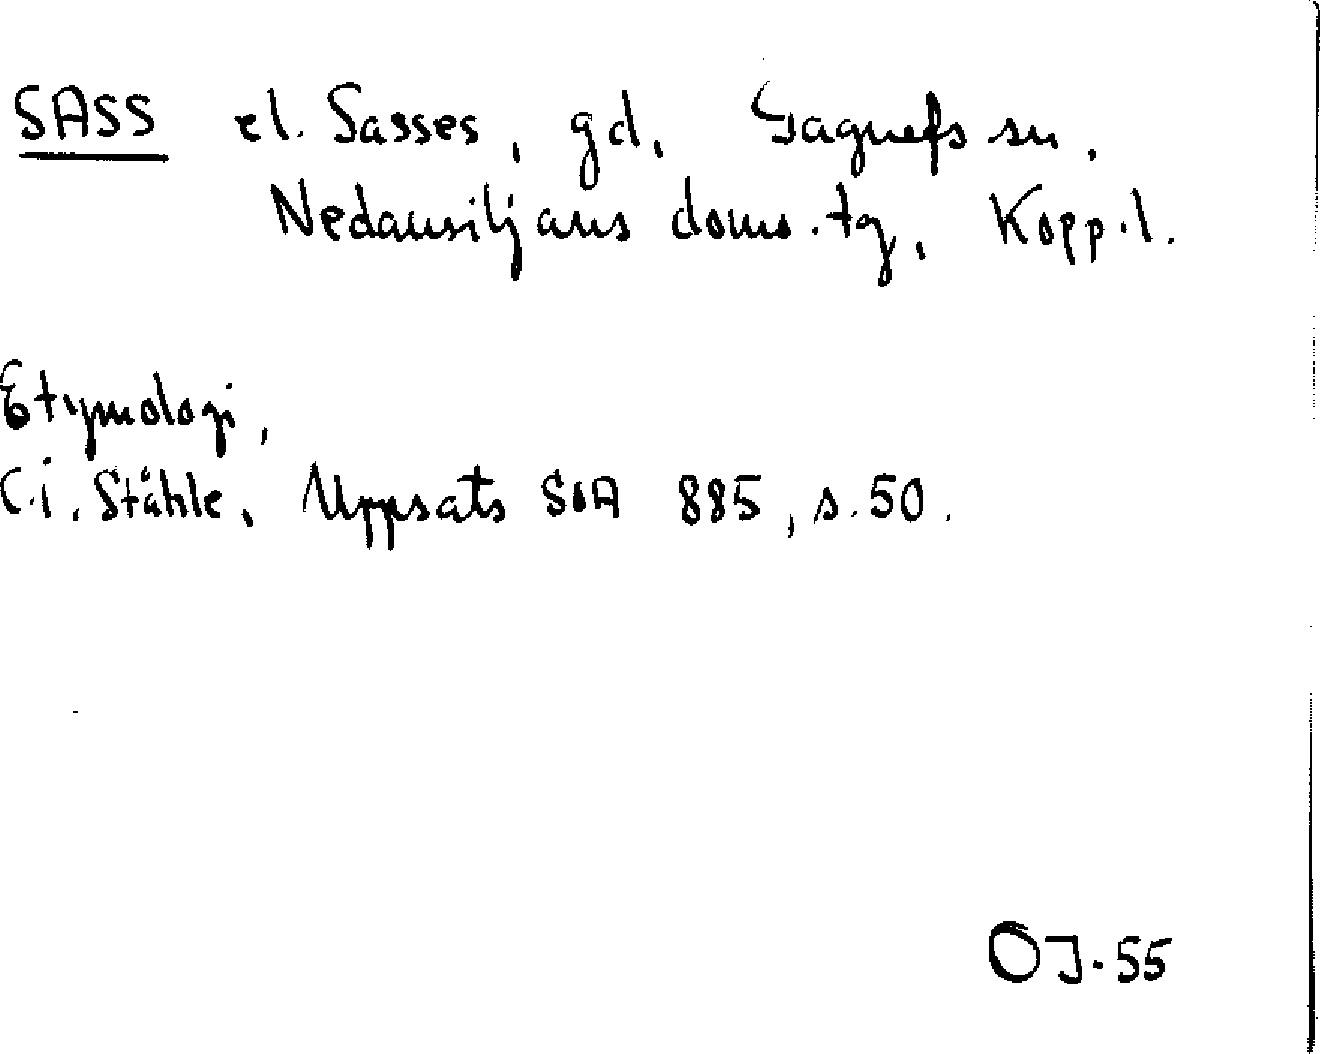 SASS el. Sasses, gd, Gagnefs sn.
Nedansiljans doms.tg, Kopp.l.
Etymologi,
C.i. Ståhle, Uppsats SOA 885, s.50.
OJ.55